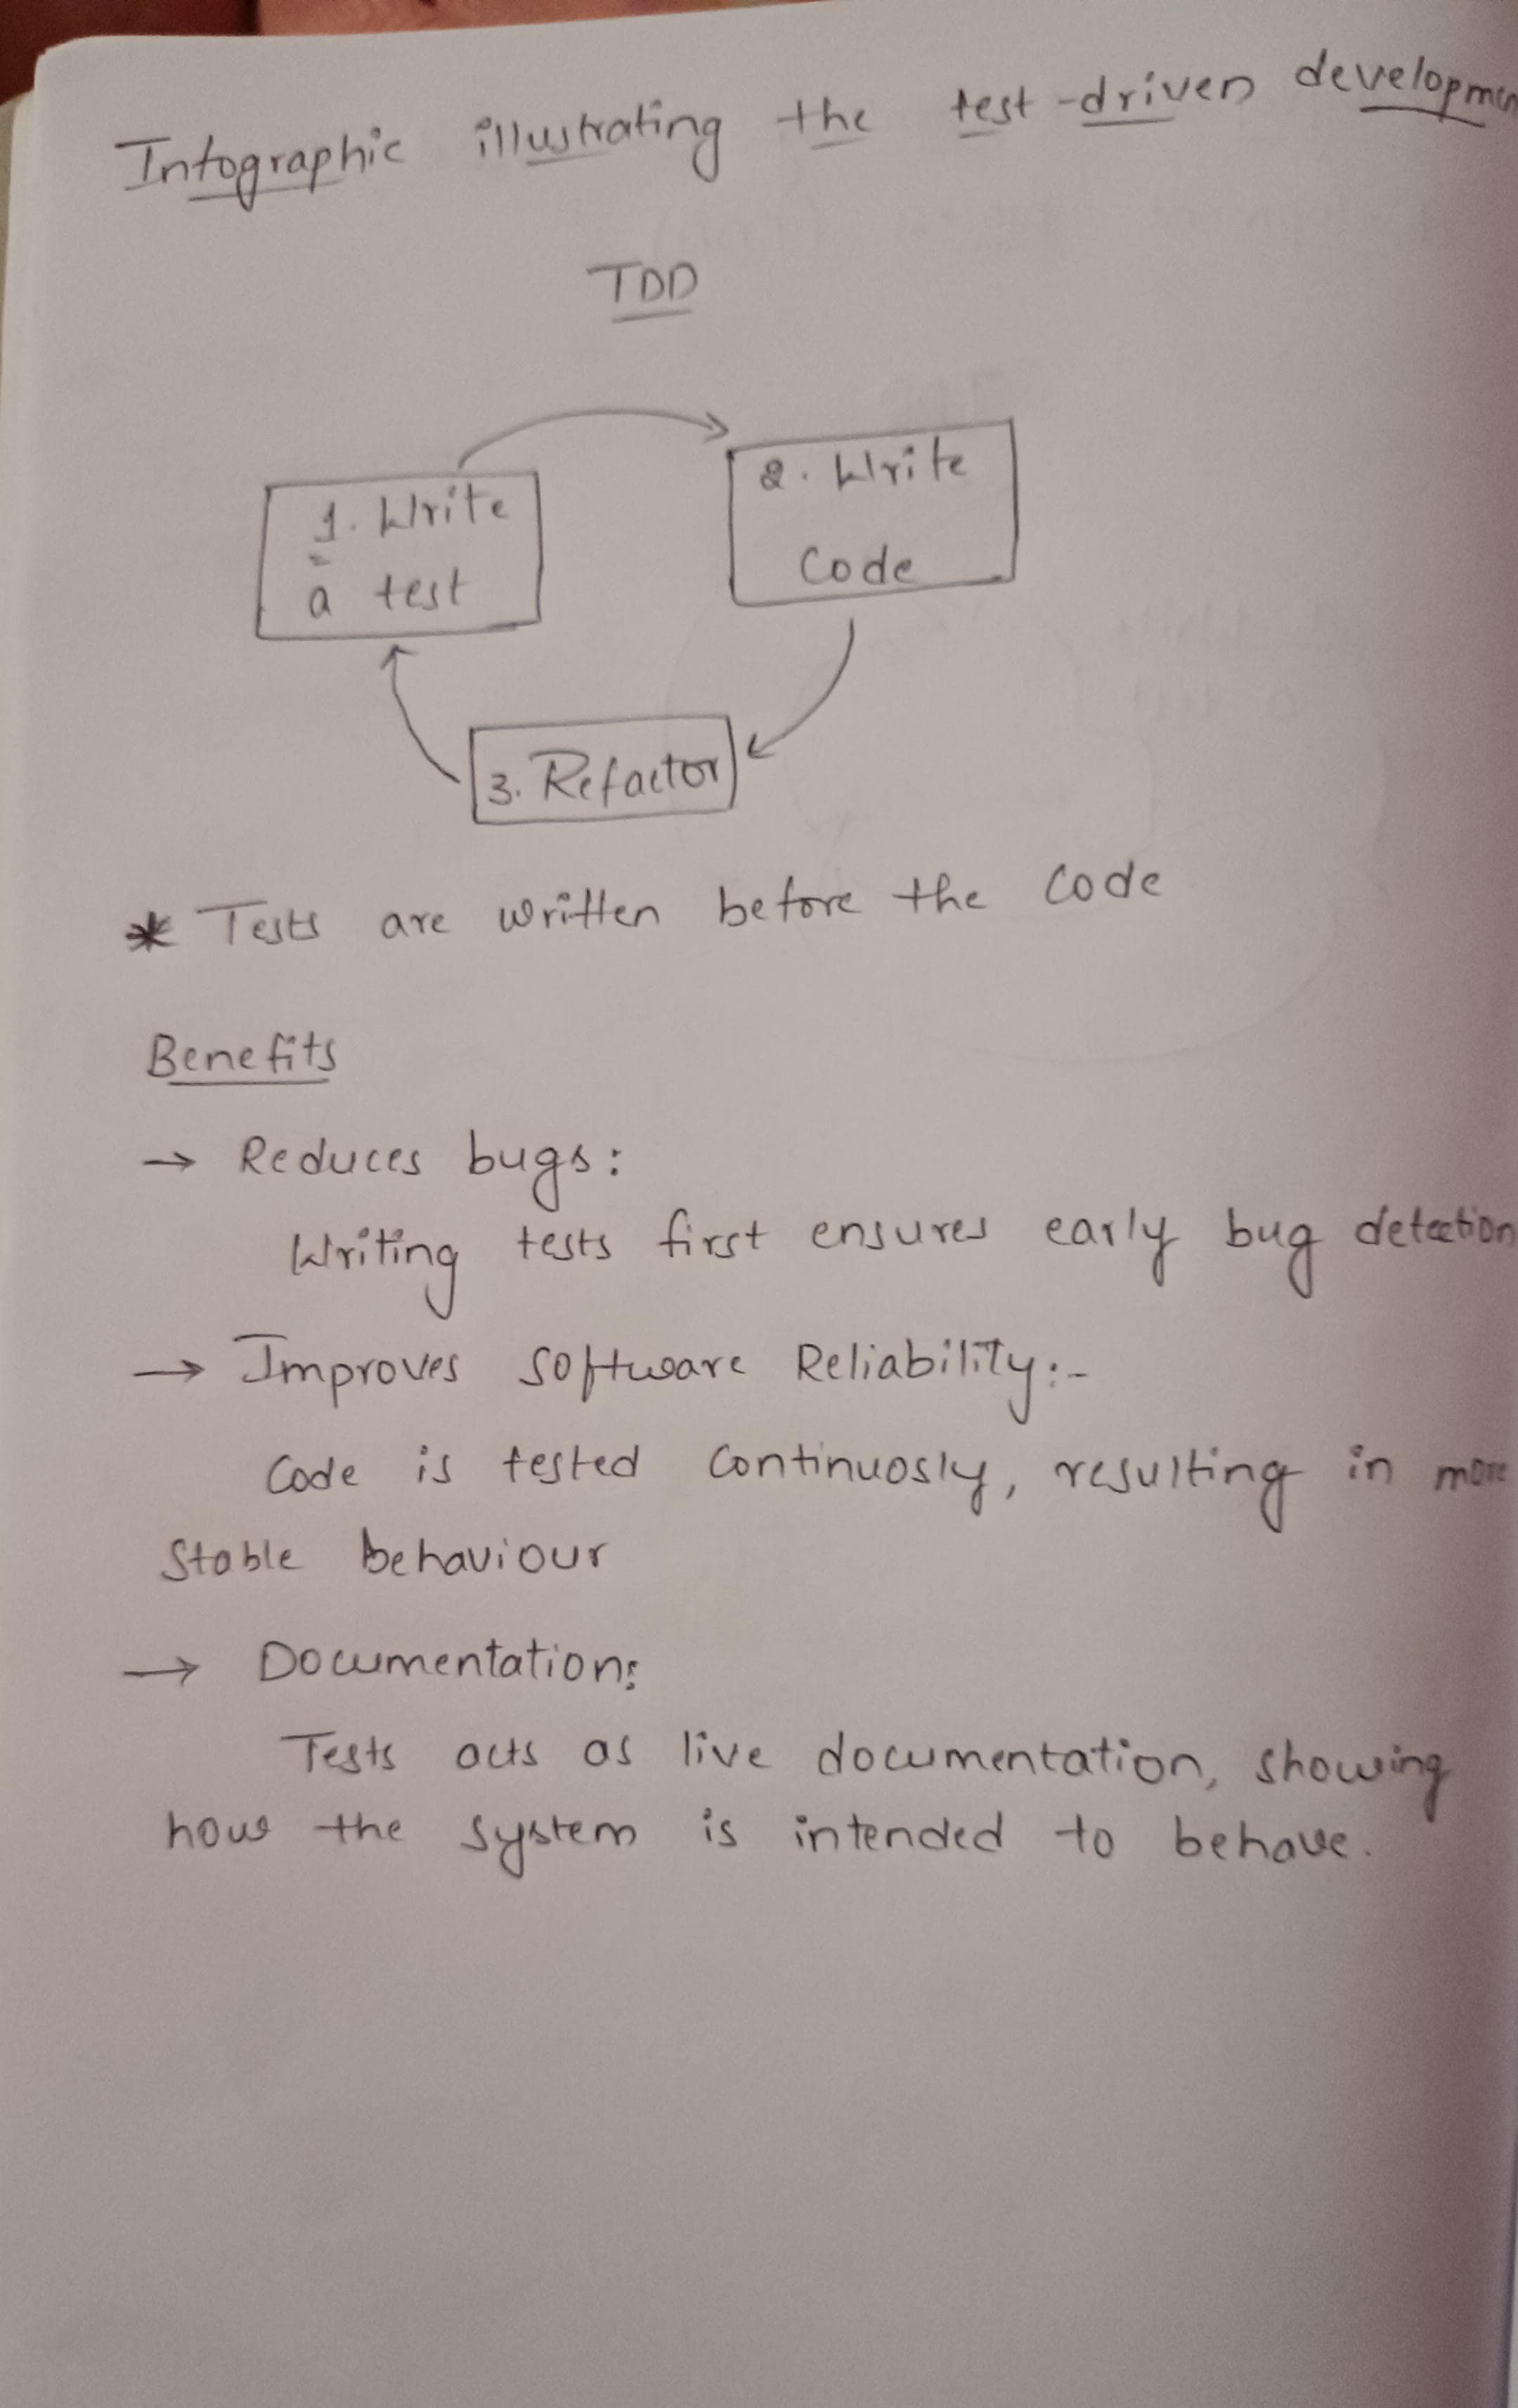 Infographic illustrating the test-driven developmen
TDD
1. Write
a test
2. Write
Code
3. Refactor
* Tests are written before the code
Benefits
→ Reduces bugs:
Writing tests first ensures early bug detection
→ Improves Software Reliability:-
Code is tested continuosly, resulting in more
stable behaviour
→ Documentation:
Tests acts as live documentation, showing
how the system is intended to behave.